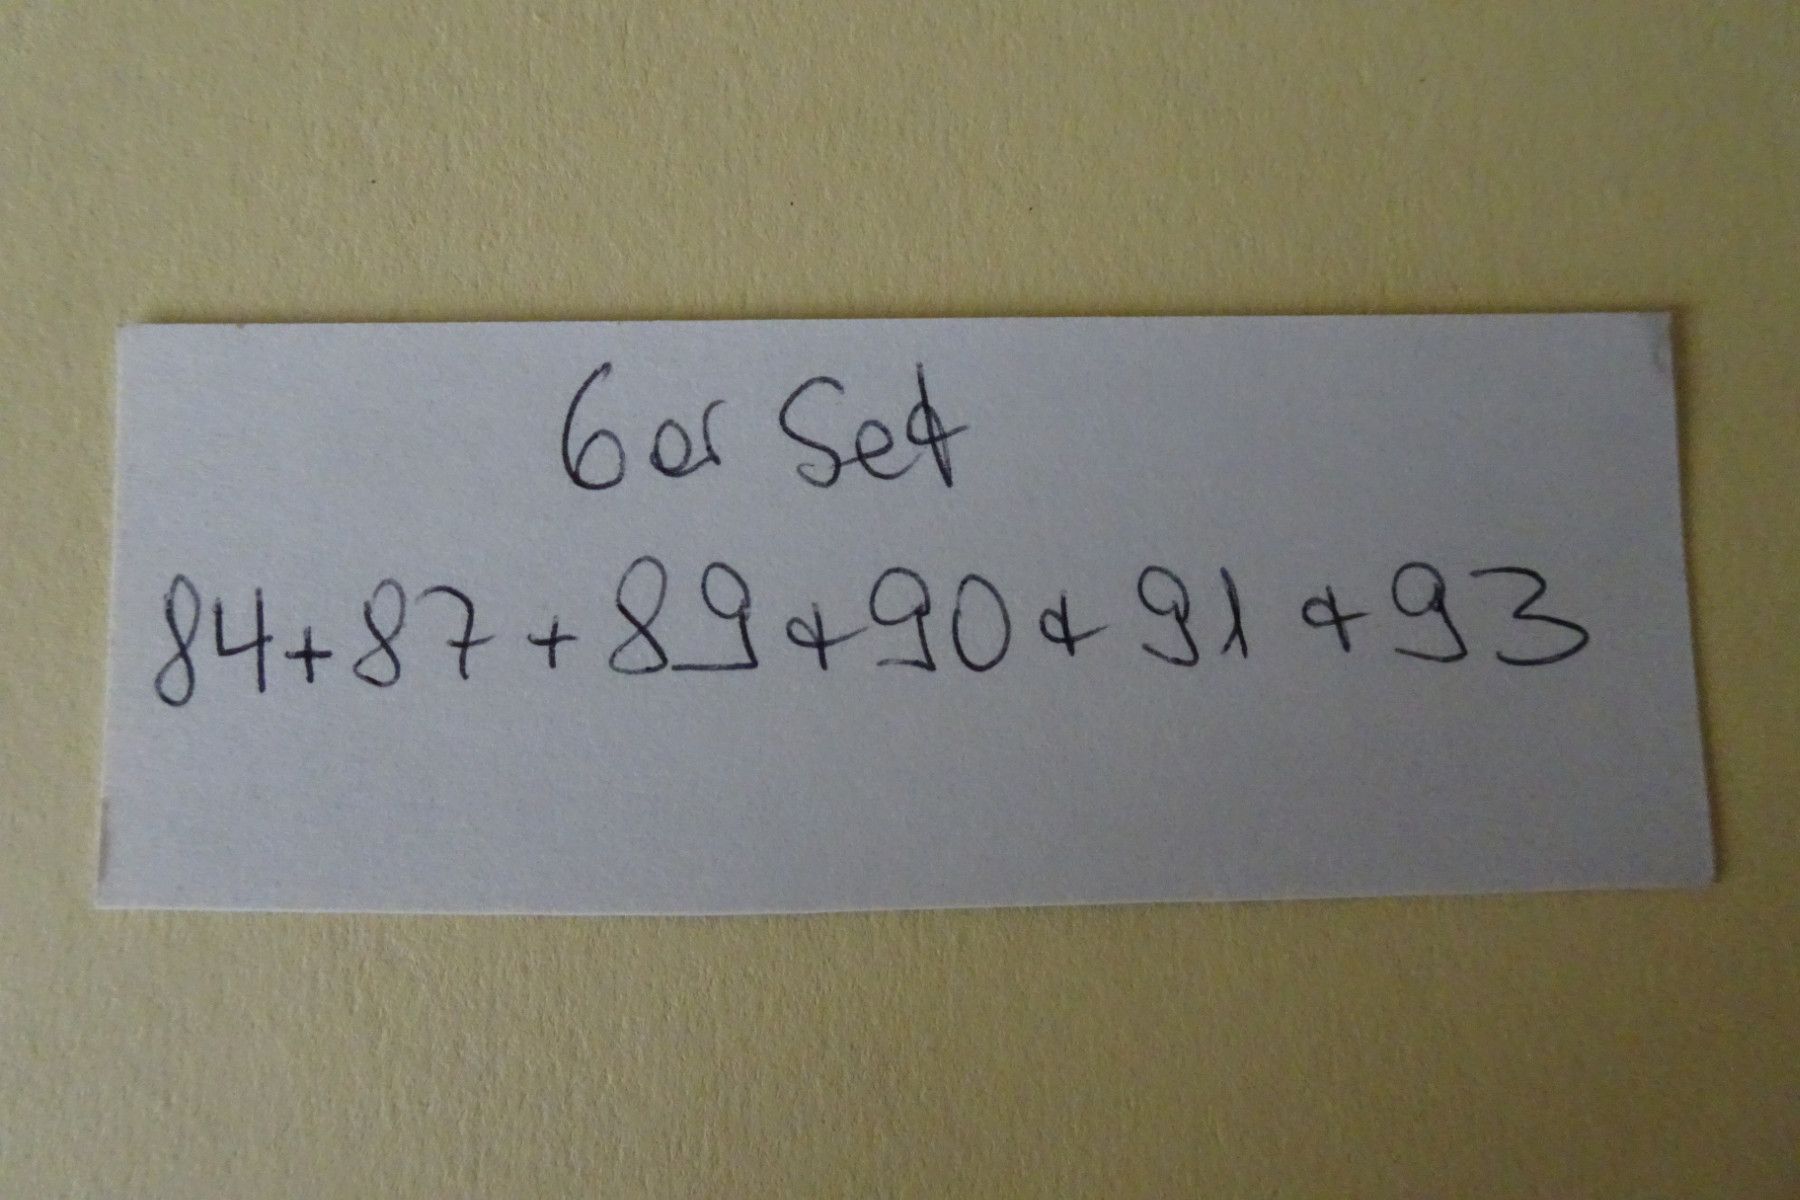 6er Set
84+87+89+90+91+93